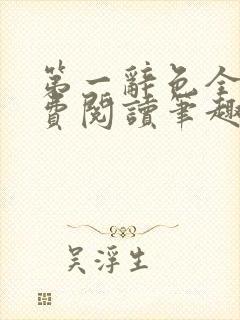 第一辭色全
費閱讀筆趣
吴浮生